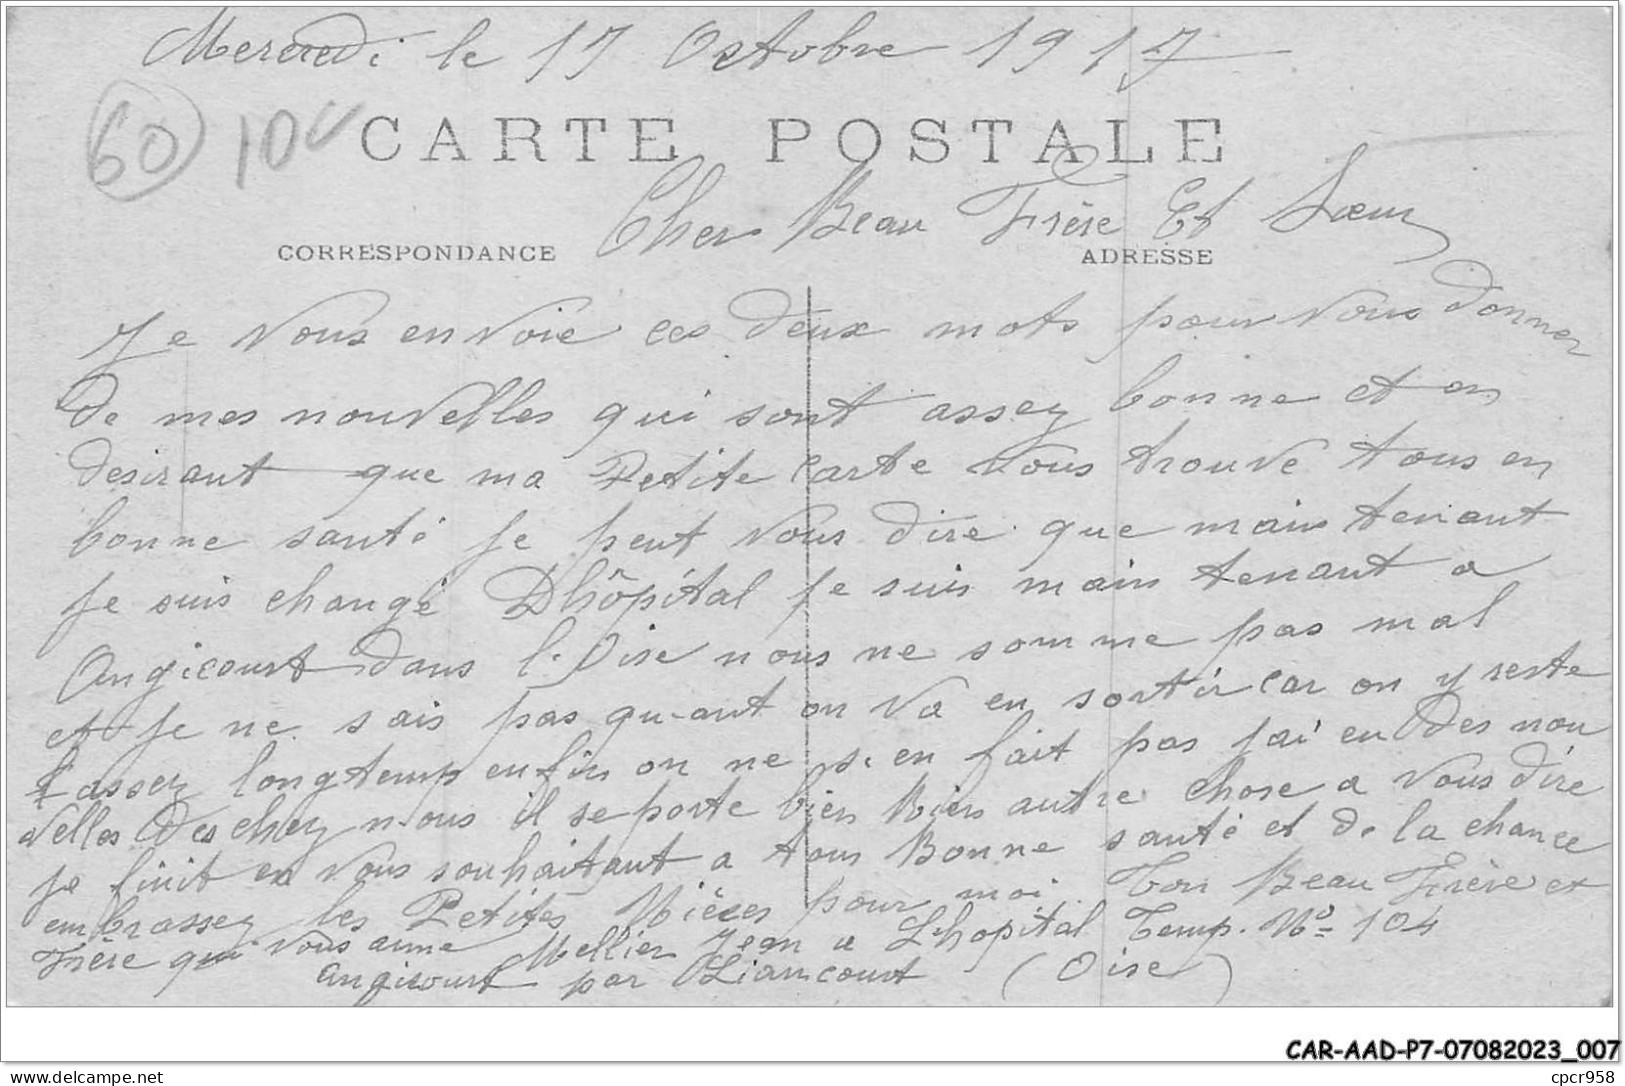 Mercredi le 17 Octobre 1917
60 10
CARTE POSTALE
Cher Beau Frère Et Sœur
CORRESPONDANCE
ADRESSE
Je vous envoie ces deux mots pour vous donner
de mes nouvelles qui sont assey bonne et en
desirant que ma Petite carte vous trouve tous en
bonne santé je peut vous dire que main tenant
je suis changé Dhôpital je suis main tenant a
Angicourt dans l'Oise nous ne somme pas mal
et je ne sais pas quant on va en sortir car on y reste
assey longtemp enfin on ne s'en fait pas jai eu des nou
velles des chey nous il se porte bien Rien autre chose a vous dire
je finit en vous souhaitant a tous Bonne santé et de la chance
embrassey les Petites Nièces pour moi. Ton Beau Frère et
Frère qui vous aime Mellier Jean a L'hopital Temp. No 104
angicourt par Liancourt (Oise)
CAR-AAD-P7-07082023_007
www.delcampe.net
cpcr958